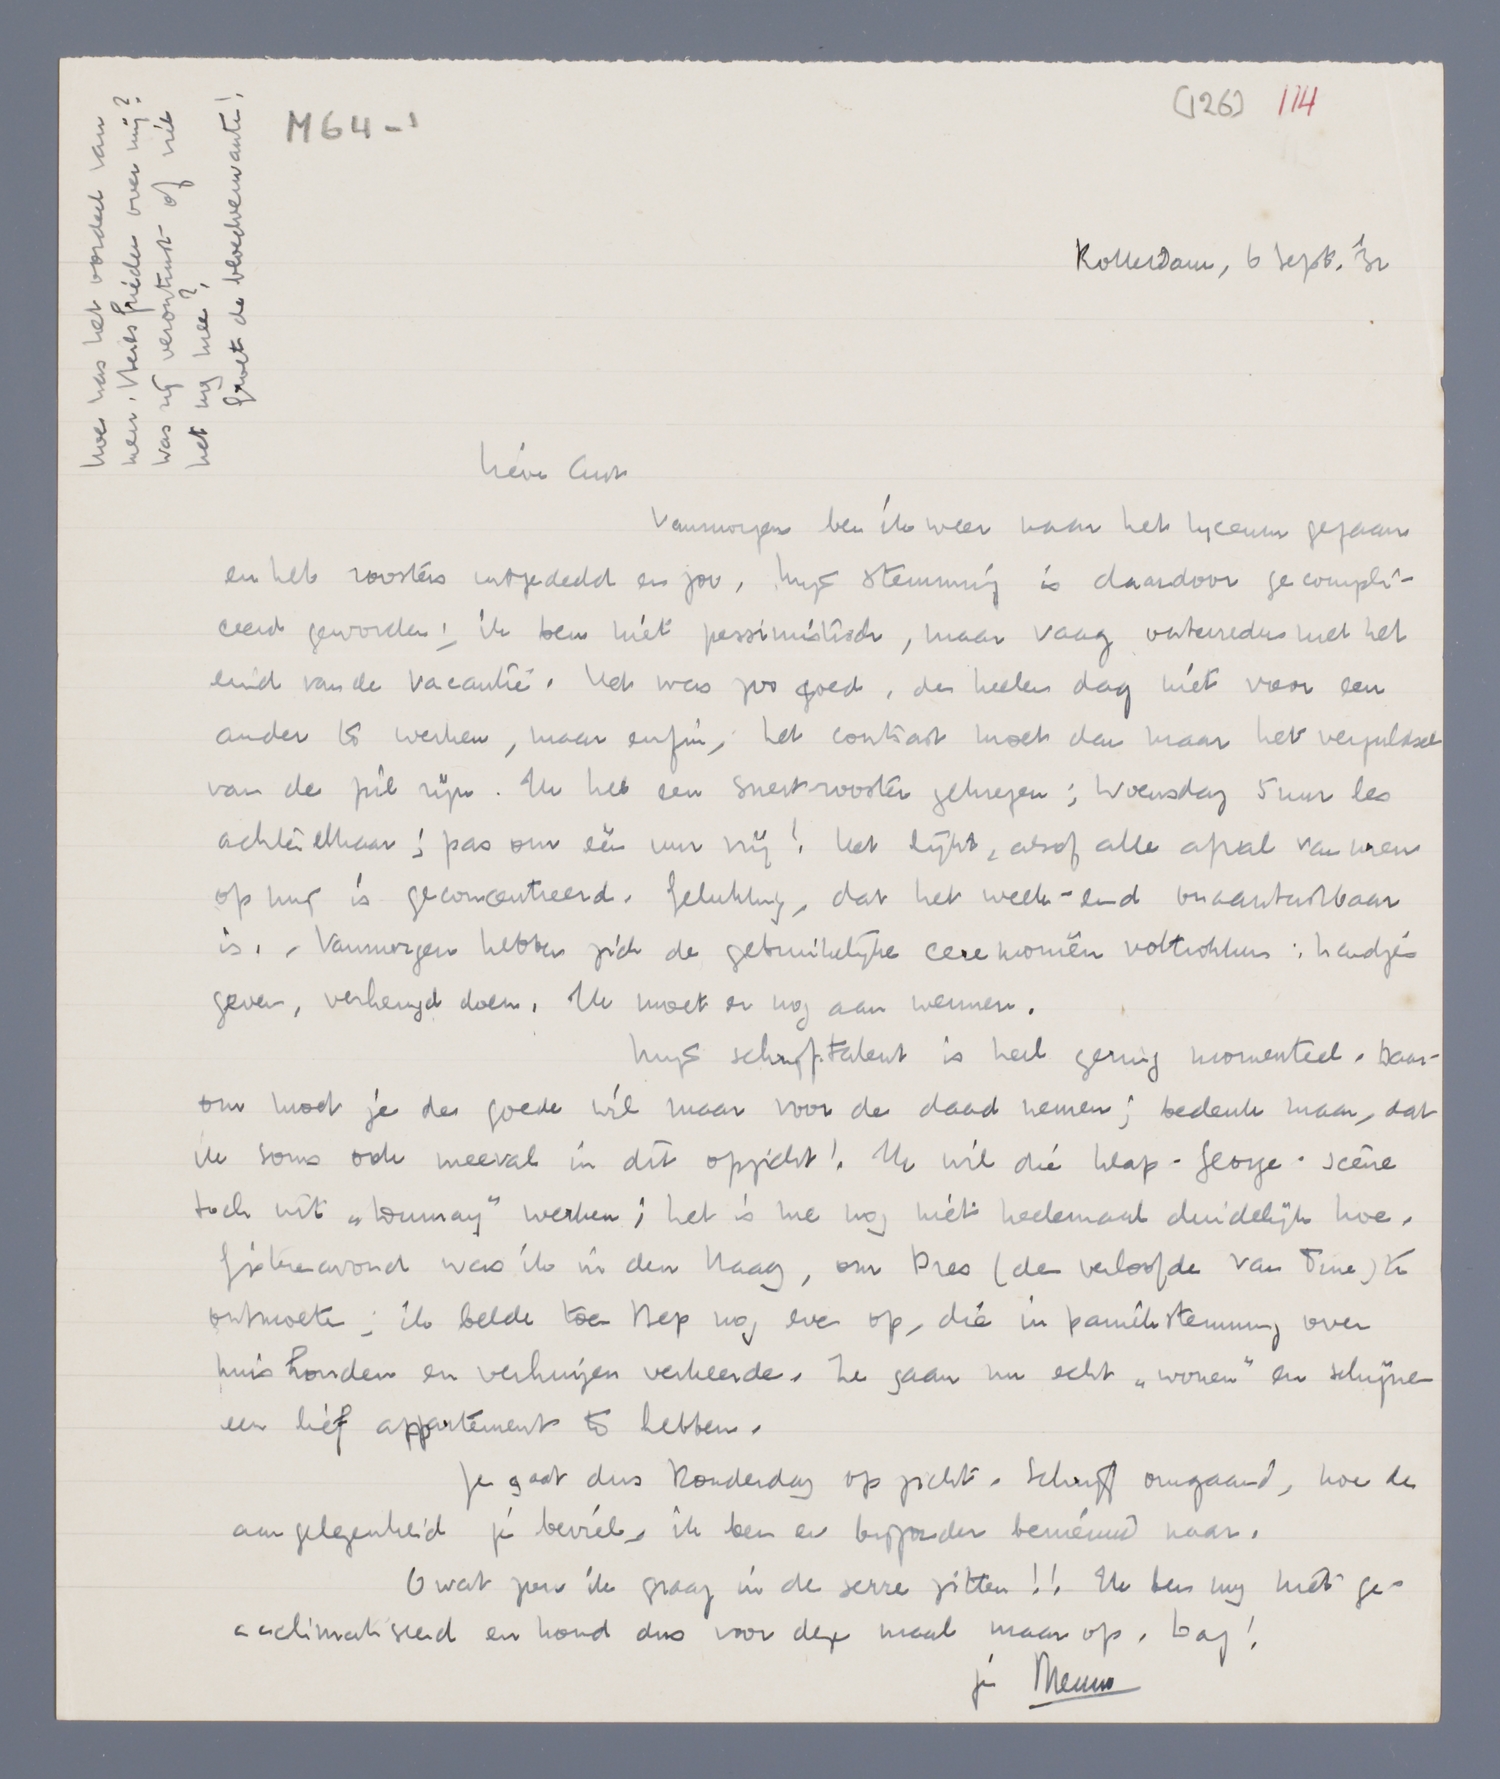 M64-1
(126) 114
Rotterdam, 6 Sept. '32
Lieve Ant
Vanmorgen ben ik weer naar het lyceum gegaan
en heb roosters uitgedeeld en zoo, mijn stemming is daardoor gecompli-
ceerd geworden; ik ben niet pessimistisch, maar vaag ontevreden met het
eind van de vacantie. Het was zoo goed, den heelen dag niet voor een
ander te werken, maar enfin, het contrast moet dan maar het verguldsel
van de pil zijn. Ik heb een snert-rooster gekregen; Woensdag 5 uur les
achter elkaar; pas om één uur vrij! Het lijkt, alsof alle afval van uren
op mij is geconcentreerd. Gelukkig, dat het week-end onaantastbaar
is. - Vanmorgen hebben zich de gebruikelijke ceremoniën voltrokken: handjes
geven, verheugd doen. Ik moet er nog aan wennen.
Mijn schrijftalent is heel gering momenteel. Daar-
om moet je den goede wil maar voor de daad nemen; bedenk maar, dat
ik soms ook meeval in dit opzicht! Ik wil die klap-George-scène
toch uit „Dumay” werken; het is me nog niet heelemaal duidelijk hoe.
Gisteravond was ik in den Haag, om Dres (den verloofde van Tine) te
ontmoeten; ik belde toen Bep nog even op, die in paniekstemming over
huishouden en verhuizen verkeerde. Ze gaan nu echt „wonen” en schijnen
een lief appartement te hebben.
Je gaat dus Donderdag op zicht. Schrijf omgaand, hoe de
aangelegenheid je bevielt, ik ben er bijzonder benieuwd naar.
O wat zou ik graag in de serre zitten!! Ik ben nog niet ge-
acclimatiseerd en houd dus voor deze maal maar op. Dag!
je Menno
Hoe was het oordeel van
men. over mij?
Was zij verontrust of viel
het nog mee?
Groet de bloedverwanten!